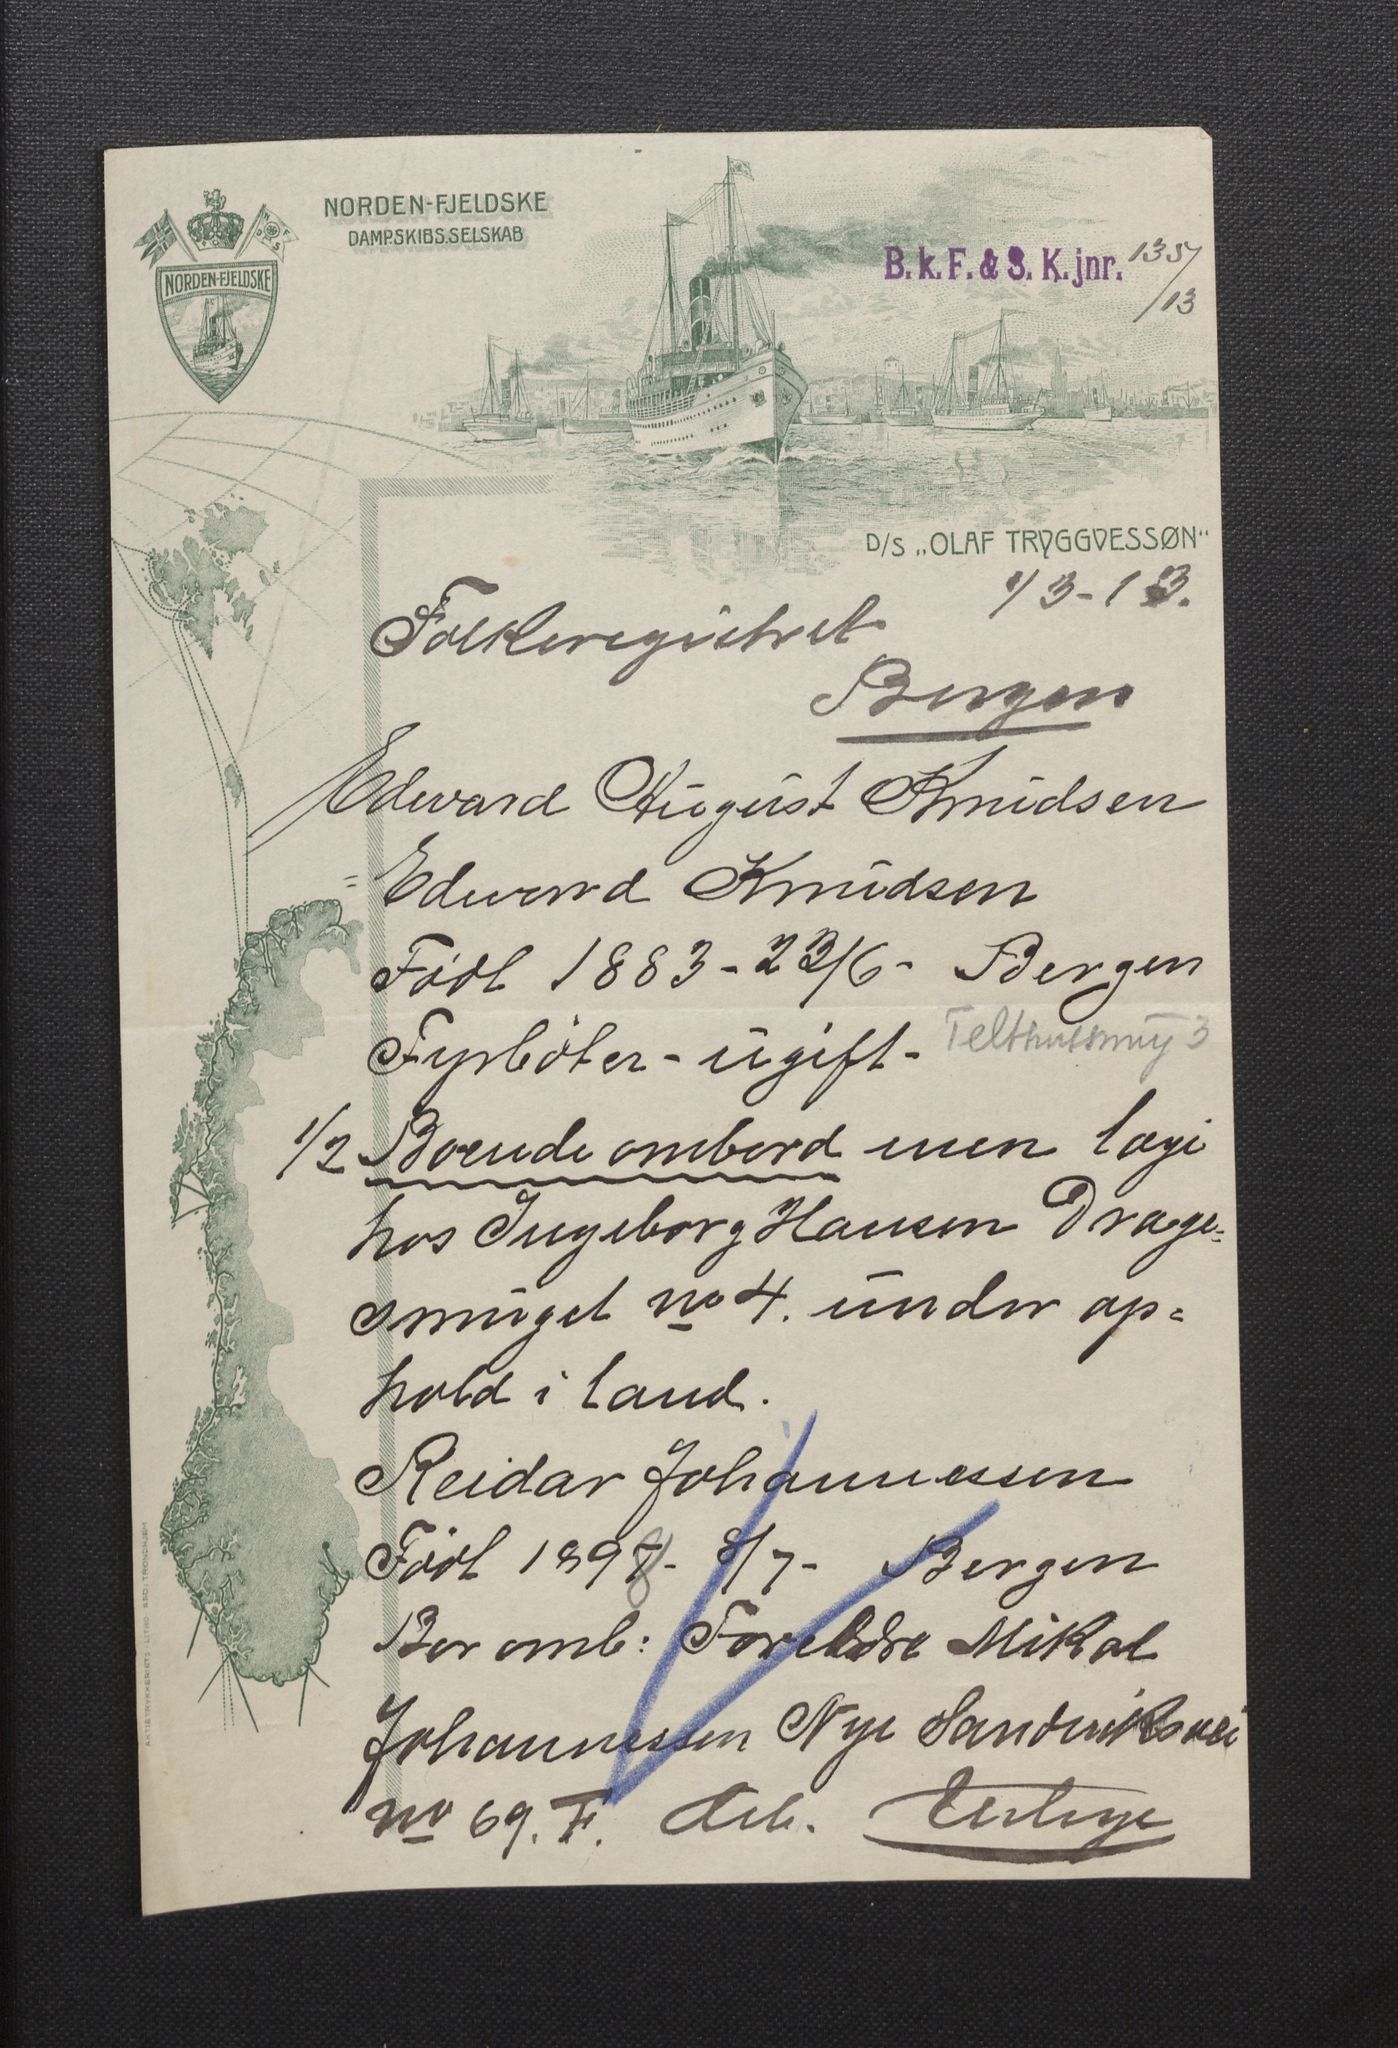 NORDEN-FJELDSKE
DAMPSKIBS.SELSKAB
NORDEN-FJELDSKE
B. k. F. & S. K. jnr. 135/13
D/S „OLAF TRYGGVESSØN"
1/3-13.
Folkeregistret
Bergen
Edward August Knudsen
= Edward Knudsen
Född 1883-23/6- Bergen
Fyrböter - ugift -
Telthussmug 3
1/2 Boende ombord men logi
hos Ingeborg Hansen Drage-
smuget no 4. under op=
hold i land.
Reidar Johannessen
Född 1898- 8/7- Bergen
Bor omb: Foreldre Mikal
Johannessen Nye Sandviksvei
no 69. F. Arb.
AKTIETRYKKERIETS LITHO. ANST. TRONDHJEM